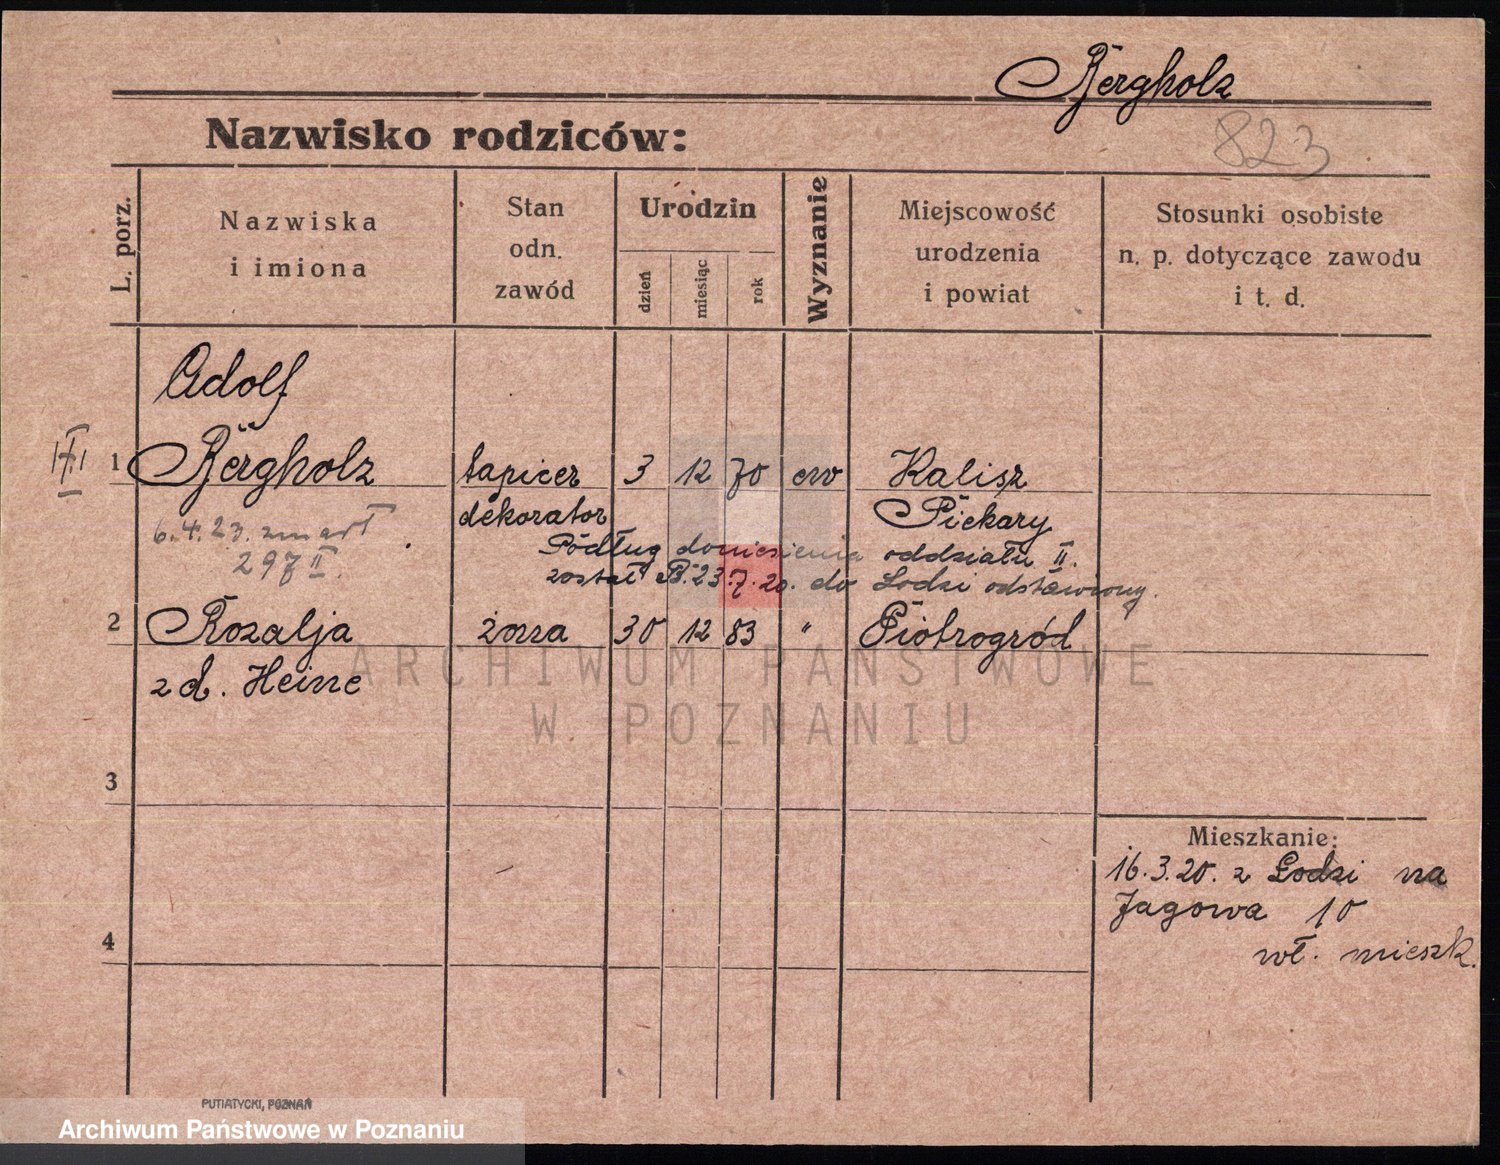 Bergholz
Nazwisko rodziców:
823
L. porz.
Nazwiska
i imiona
Stan
odn.
zawód
Urodzin
dzień
miesiąc
rok
Wyznanie
Miejscowość
urodzenia
i powiat
Stosunki osobiste
n. p. dotyczące zawodu
i t. d.
Adolf
1 Bergholz tapicer 3 12 70 ew Kalisz
dekorator Piekary
6.4.23. zmarł
297 II.
Podług doniesienia oddziału II.
został 23.7.20. do Lodzi odstawiony.
2 Rozalja żona 30 12 83 " Piotrogród
zd. Heine
ARCHIWUM PAŃSTWOWE
W POZNANIU
3
Mieszkanie:
16.3.20. z Lodzi na
Jagowa 10
wł. mieszk.
4
PUTIATYCKI, POZNAŃ
Archiwum Państwowe w Poznaniu